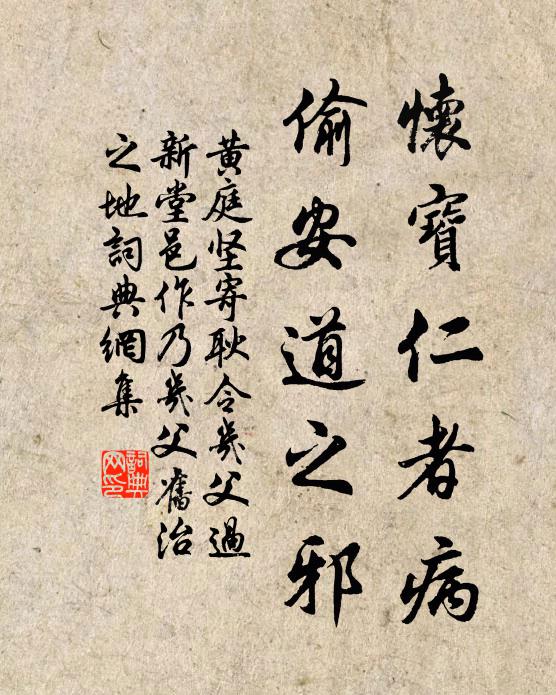 懷寶仁者病
偷安道之邪
黄庭坚寄耿令幾父過
新堂邑作乃幾父舊治
之地詞典網集
詞典
网印